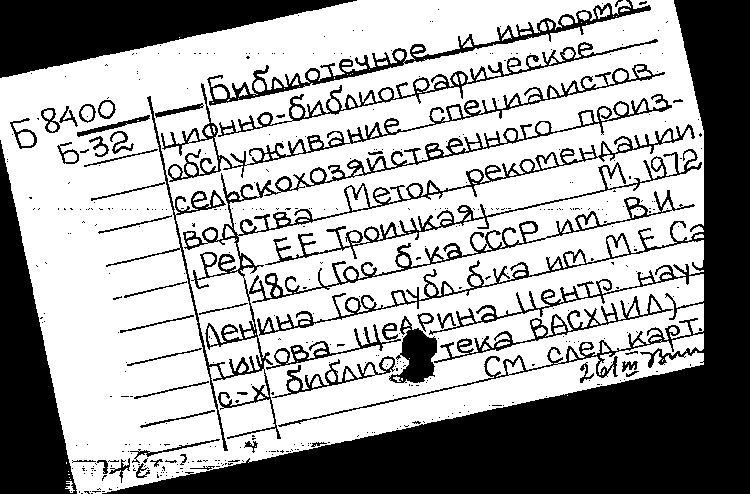 Библиотечное и информа-
Б 8400
Б-32
ционно-библиографическое
обслуживание специалистов
сельскохозяйственного произ-
водства. Метод. рекомендации.
[Ред. Е.Е. Троицкая] М., 1972
48с. (Гос. б-ка СССР им. В.И.
Ленина. Гос. публ. б-ка им. М.Е. Са
тикова-Щедрина. Центр. науч
с.-х. библиотека ВАСХНИЛ)
См. след. карт.